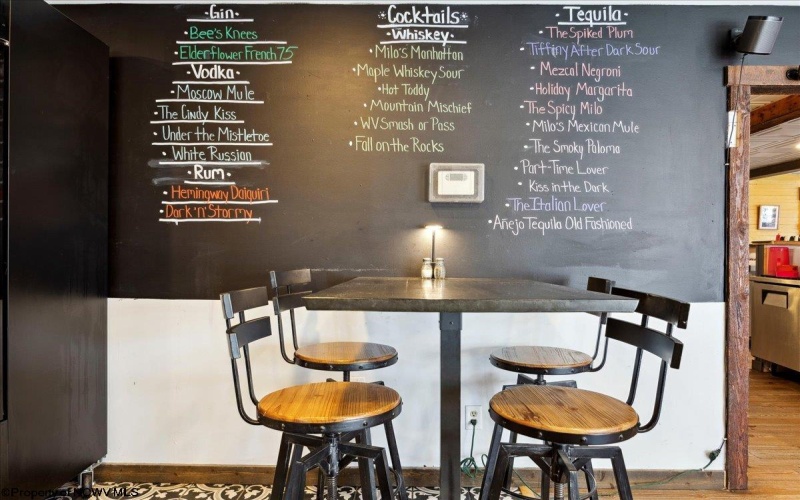 Gin
• Bee's Knees
• Elderflower French 75
Vodka
• Moscow Mule
• The Cindy Kiss
• Under the Mistletoe
• White Russian
• Rum •
• Hemingway Daiquiri
• Dark 'n' Stormy
Cocktails
• Whiskey •
• Milo's Manhattan
• Maple Whiskey Sour
• Hot Toddy
• Mountain Mischief
• WV Smash or Pass
• Fall on the Rocks
Tequila
• The Spiked Plum
• Tiffiny After Dark Sour
• Mezcal Negroni
• Holiday Margarita
• The Spicy Milo
• Milo's Mexican Mule
• The Smoky Paloma
• Part-Time Lover
• Kiss in the Dark
• The Italian Lover
• Añejo Tequila Old Fashioned
©Property of NCWV MLS